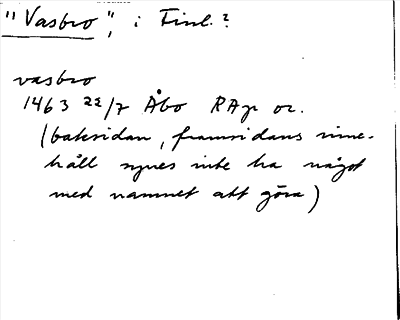 "Vasbro", i Finl.?
vasbro
1463 22/7 Åbo RAp or.
(baksidan, framsidans inne-
håll synes inte ha något
med namnet att göra)